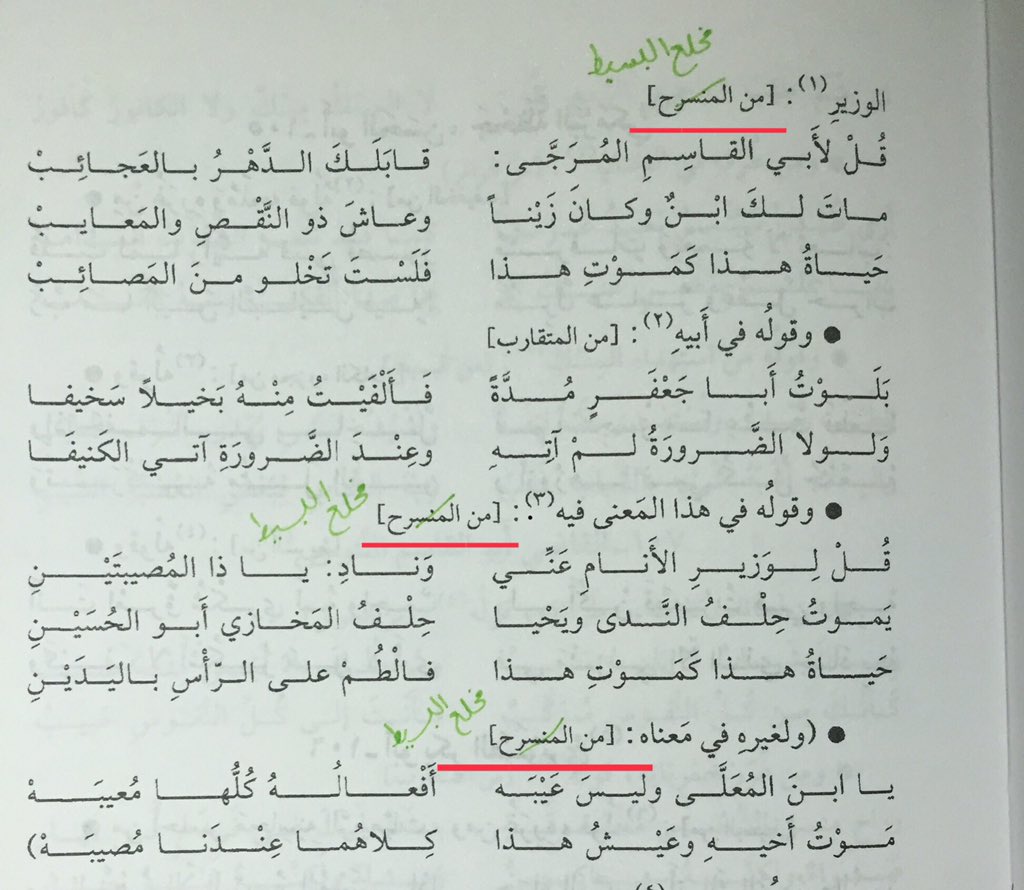 مخلع البسيط
الوزيرِ(١): [من المنسرح]
قُلْ لأَبي القاسِمِ المُرَجَّى: قابَلَكَ الدَّهْرُ بالعَجائِبْ
ماتَ لكَ ابْنٌ وكانَ زَيْناً وعاشَ ذو النَّقْصِ والمَعايبْ
حَياةُ هذا كَمَوْتِ هذا فَلَسْتَ تَخْلو منَ المَصائِبْ
● وقولُه في أَبيهِ(٢): [من المتقارب]
بَلَوْتُ أَبا جَعْفَرٍ مُدَّةً فَأَلْفَيْتُ مِنْهُ بَخيلاً سَخيفا
وَلولا الضَّرورَةُ لمْ آتِهِ وعِنْدَ الضَّرورَةِ آتي الكَنيفَا
مخلع البسيط
● وقولُه في هذا المَعنى فيه(٣): [من المنسرح]
قُلْ لِوَزيرِ الأَنامِ عَنِّي وَنادِ: يا ذا المُصيبتَيْنِ
يَموتُ حِلْفُ النَّدى ويَحْيا حِلْفُ المَخازي أَبو الحُسَيْنِ
حَياةُ هذا كَمَوْتِ هذا فالْطُمْ على الرّأْسِ باليَدَيْنِ
مخلع البسيط
● (ولغيرهِ في مَعناه: [من المنسرح]
يا ابنَ المُعَلَّى وليسَ عَيْبَه أَفْعالُهُ كُلُّها مُعيبَهْ
مَوْتُ أَخيهِ وعَيْشُ هذا كِلاهُما عِنْدَنا مُصيبَهْ)